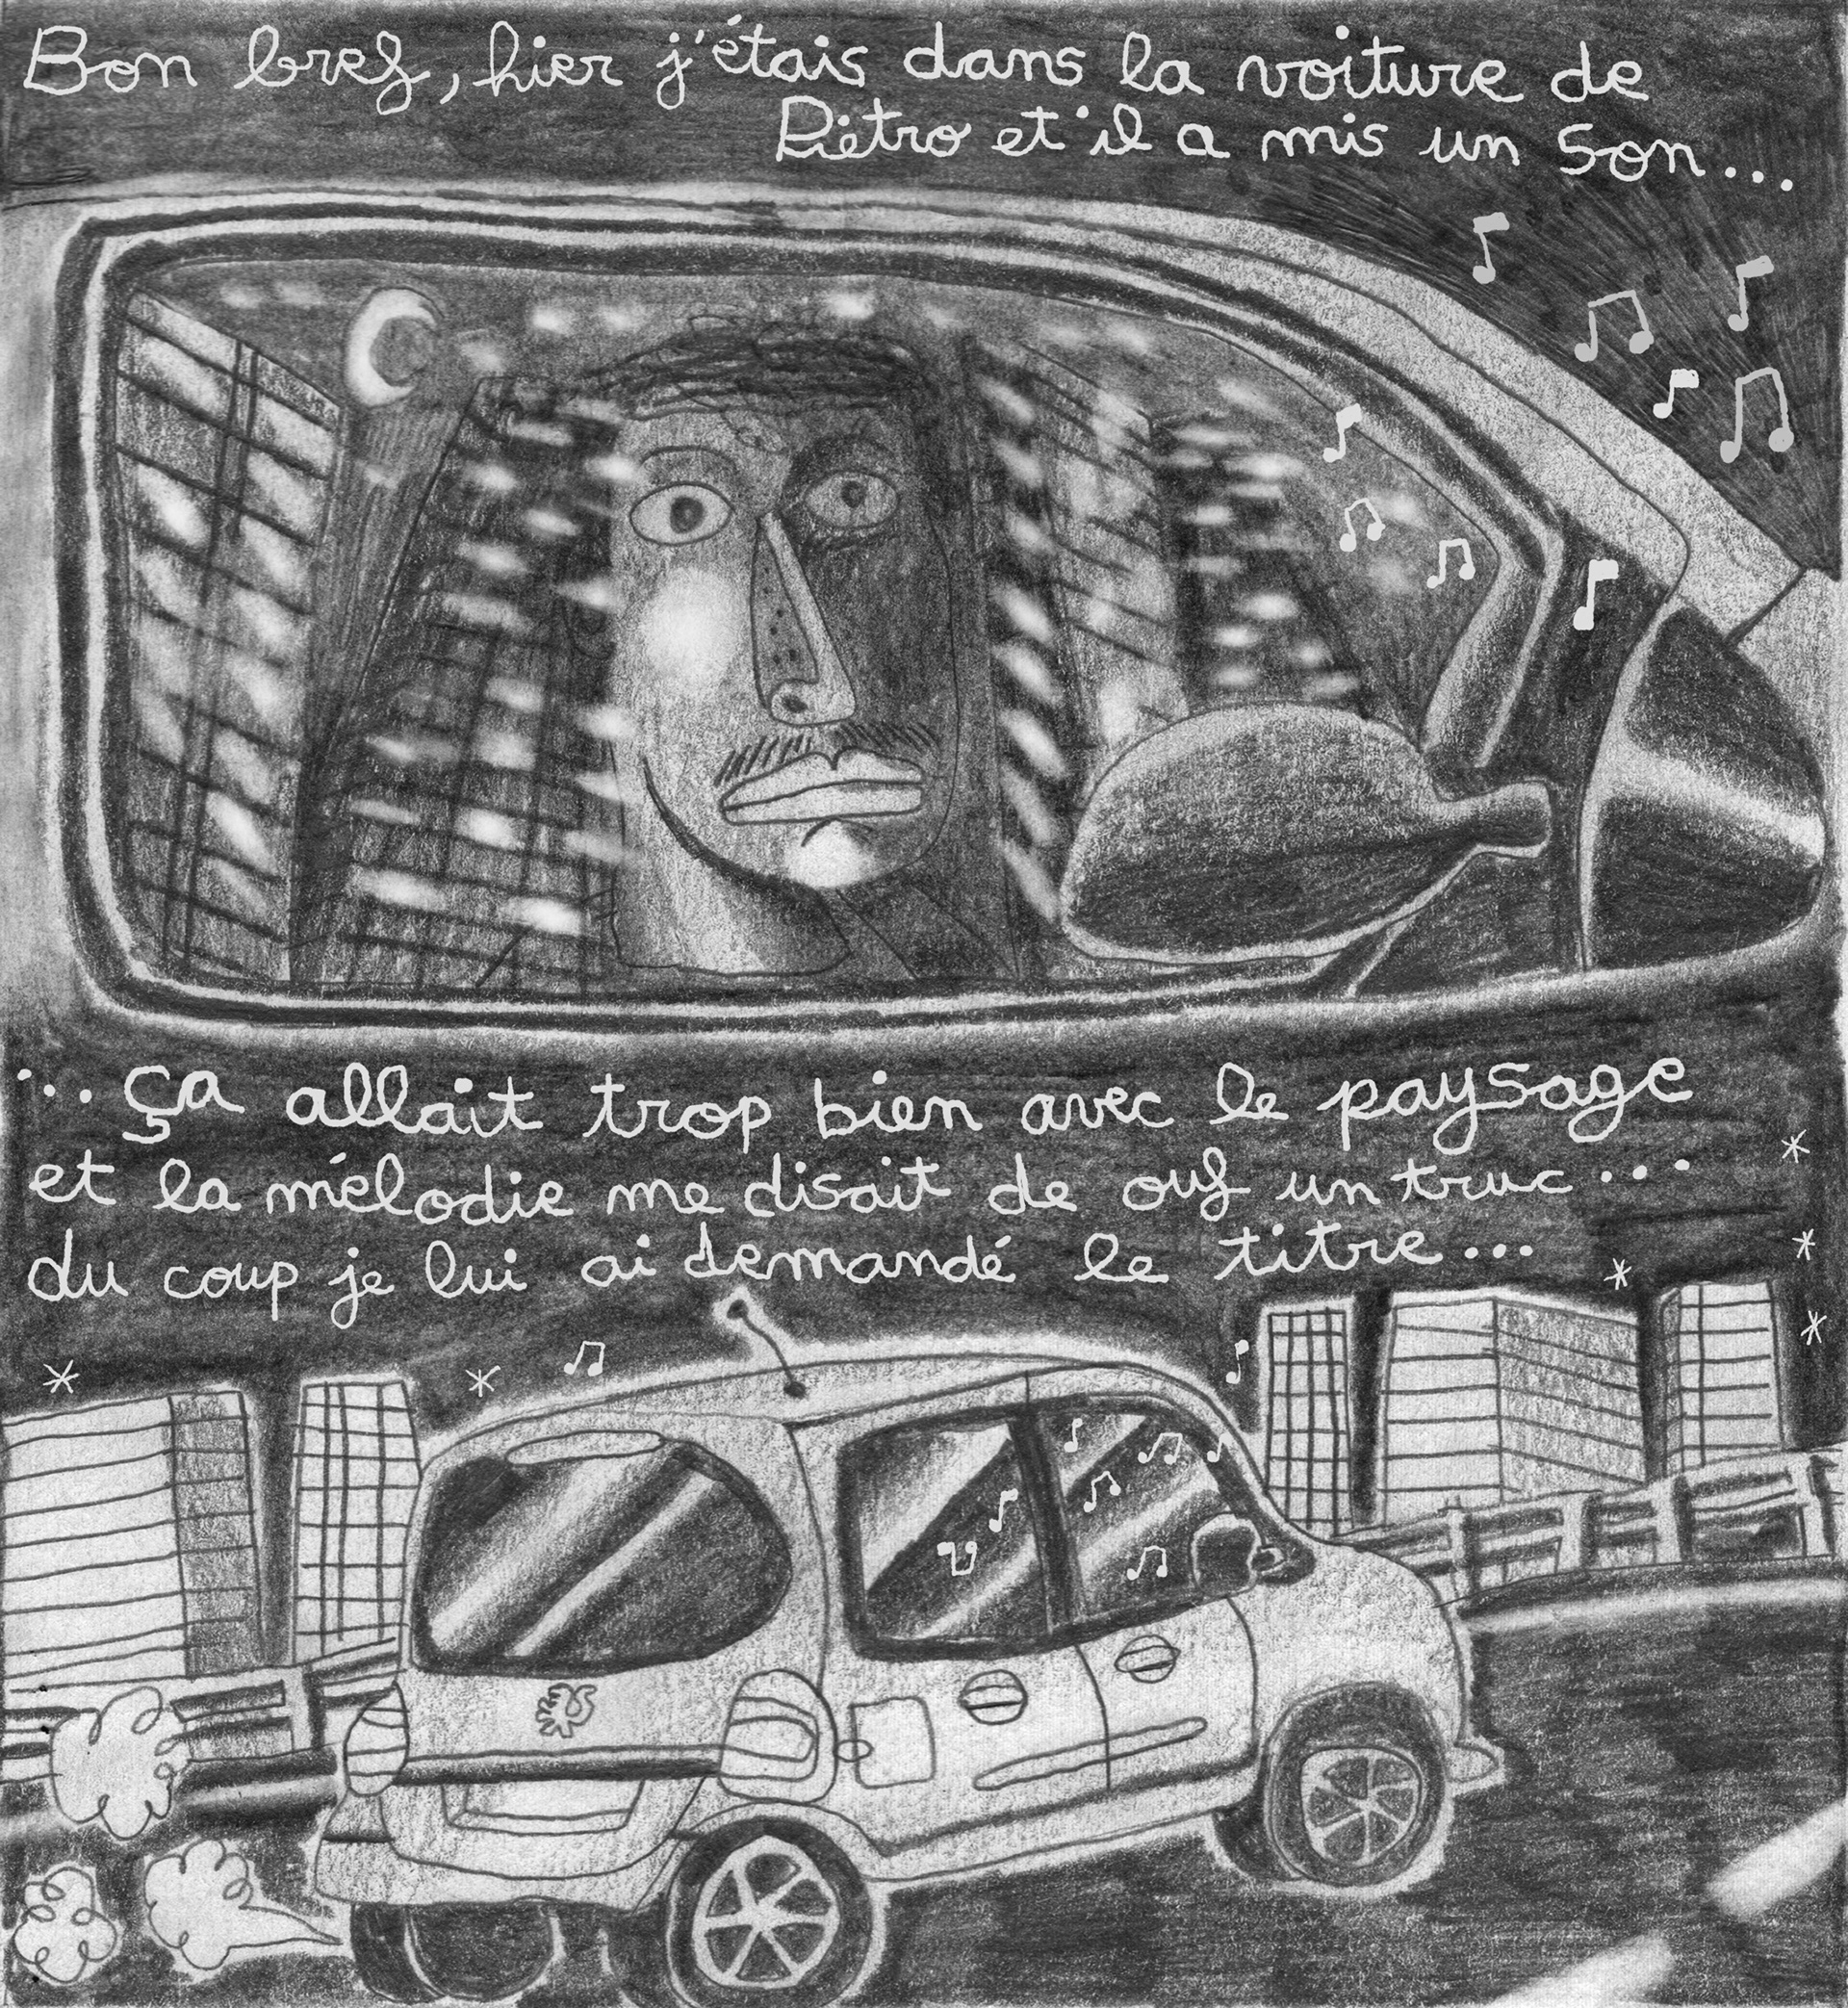 Bon bref, hier j'étais dans la voiture de
Piétro et il a mis un son...
...ça allait trop bien avec le paysage
et la mélodie me disait de ouf un truc...
du coup je lui ai demandé le titre...